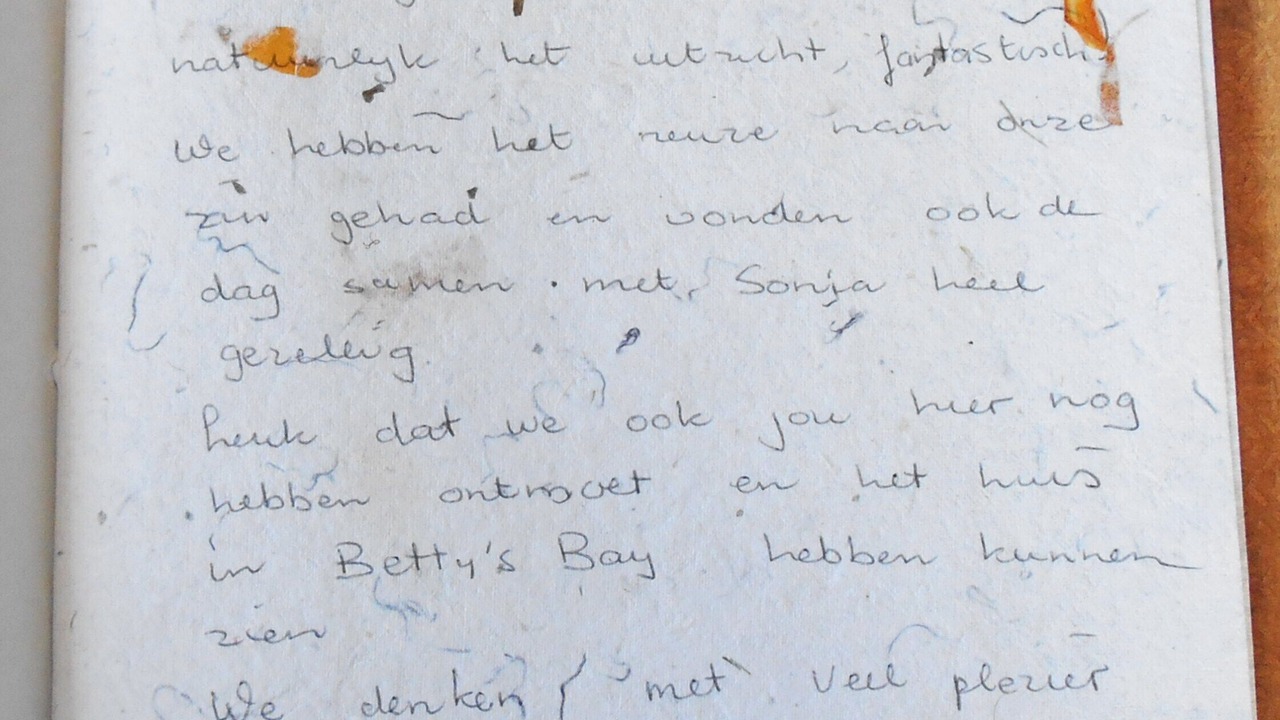 natuurlijk het uitzicht, fantastisch!
We hebben het reuze naar onze
zin gehad en vonden ook de
dag samen met Sonja heel
gezellig.
Leuk dat we ook jou hier nog
hebben ontmoet en het huis
in Betty's Bay hebben kunnen
zien
We denken met veel plezier